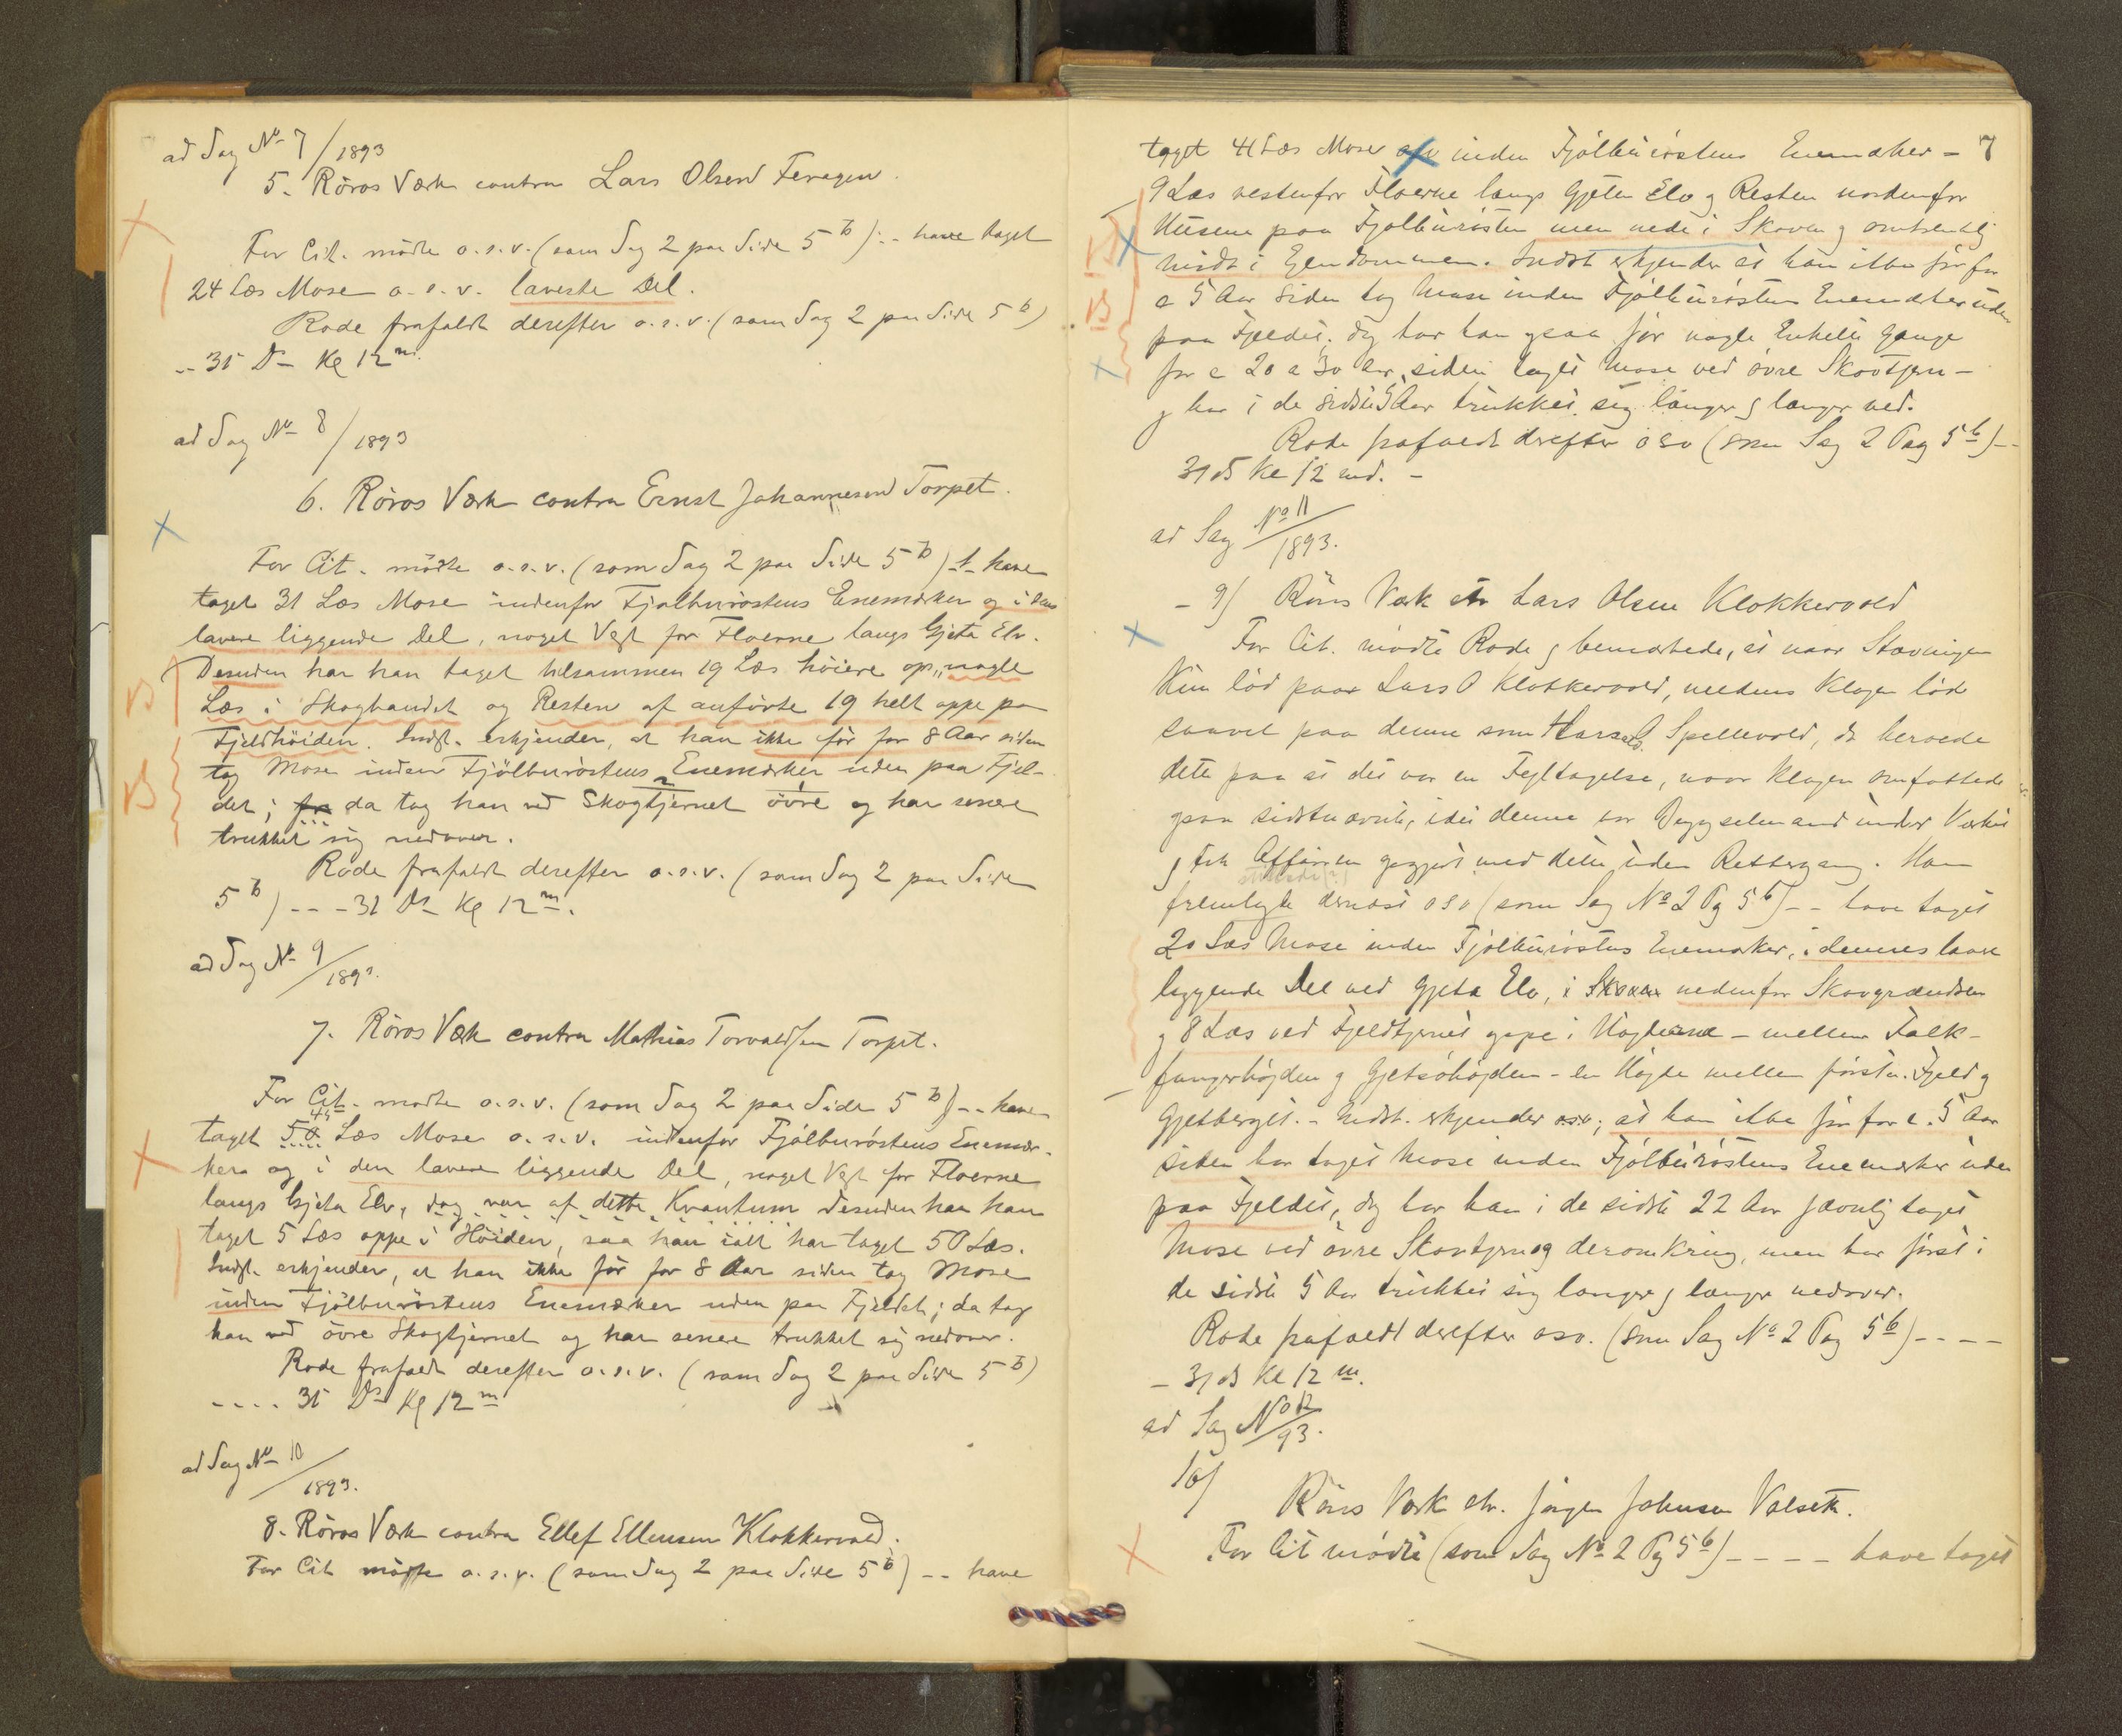 ad Sag No 7/1893
5. Röros Værk contra Lars Olsen Feragen.
For Cit. mödte o.s.v. (som Sag 2 paa Side 5b) -- have taget
24 Læs Mose o.s.v. laveste Del.
Rode frafaldt derefter o.s.v. (som Sag 2 paa Side 5b)
-- 31 Ds Kl 12 m.
ad Sag No 8/1893
6. Röros Værk contra Ernst Johannesen Torpet.
For Cit. mödte o.s.v. (som Sag 2 paa Side 5b) -- have
taget 31 Læs Mose indenfor Fjølburöstens Enemærker og i den
lavere liggende Del, noget Vest for Floerne langs Gjeta Elv.
Desuden har han taget tilsammen 19 Læs höiere op, nogle
Læs i Skogbandet og Resten af anförte 19 helt oppe paa
Fjeldhöiden. Indst. erkjender, at han ikke för for 8 Aar siden
tog Mose inden Fjölburöstens Enemærker uden paa Fjel-
det; da tog han ved Skogtjernet övre og har senere
trukket sig nedover.
Rode frafaldt derefter o.s.v. (som Sag 2 paa Side
5b) --- 31 Ds Kl 12 m.
ad Sag No 9/1893.
7. Röros Værk contra Mathias Torvaldsen Torpet.
For Cit. mödte o.s.v. (som Sag 2 paa Side 5b) -- have
45
taget 50 Læs Mose o.s.v. indenfor Fjölburöstens Enemær-
kers og i den lavere liggende Del, noget Vest for Floerne
langs Gjeta Elv, dog var af dette Kvantum desuden har han
taget 5 Læs oppe i Höiden, saa han ialt har taget 50 Læs.
Indst. erkjender, at han ikke för for 8 Aar siden tog Mose
inden Fjölburöstens Enemærker uden paa Fjeldet; da tog
han ved övre Skogtjernet og har senere trukket sig nedover.
Rode frafaldt derefter o.s.v. (som Sag 2 paa Side 5b)
---- 31 Ds Kl 12 m
ad Sag No 10/1893.
8. Röros Værk contra Ellef Ellensen Klokkervold.
For Cit mödte o.s.v. (som Sag 2 paa Side 5b) -- have
7
taget 41 Læs Mose inden Fjölburöstens Enemærker -
9 Læs vestenfor Floerne langs Gjeten Elv og Resten nordenfor
Husene paa Fjölburösten men nede i Skoven og omtrentlig
midt i Ejendommen. Indst erkjender at han ikke för for
c 5 Aar siden tog Mose inden Fjölburöstens Enemærker uden
paa Fjeldet, dog har han ogsaa för nogle Enkelte Gange
for c 20 a 30 Aar siden taget Mose ved övre Skovtjern -
og har i de sidste 5 Aar trukket sig længer og længer ned.
Rode frafaldt derefter osv (som Sag 2 Pag 5b) --
31 ds Kl 12 md. -
ad Sag No 11/1893.
- 9) Röros Værk ctr Lars Olsen Klokkervold
For Cit. mödte Rode og bemærkede, at naar Stævningen
kun lød paa Lars O Klokkervold, medens Klagen lød
saavel paa denne som Lars O. Spellevold, da beroede
dette paa at det var en Fejltagelse, naar Klagen omfattede
ogsaa sidstnævnte, idet denne var Bygselmand under Værket
og fik Affæren opgjort med dette uden Rettergang. Han
fremlagte dernæst osv (som Sag No 2 Pg 5b) -- have taget
20 Læs Mose inden Fjölburöstens Enemærker, i dennes lavere
liggende Del ved Gjeta Elv, i Skoven nedenfor Skovgrændsen
og 8 Læs ved Fjeldtjernet oppe i Høgderne - mellem Falk-
fangerhøjden og Gjetsöhøjden - en Høgde mellem förste Fjeld og
Gjetberget. - Indst. erkjender osv; at han ikke för for c. 5 Aar
siden har taget Mose inden Fjölburöstens Enemærker uden
paa Fjeldet, dog har han i de sidste 22 Aar jævnlig taget
Mose ved övre Skovtjern og deromkring, men har först i
de sidste 5 Aar trukket sig længer og længer nedover.
Rode frafaldt derefter osv. (som Sag No 2 Pag 5b) ----
- 31 ds Kl 12 m.
ad Sag No 12/93.
10)
Röros Værk ctr. Jörgen Johnsen Valset.
For Cit mödte (som Sag No 2 Pg 5b) ---- have taget